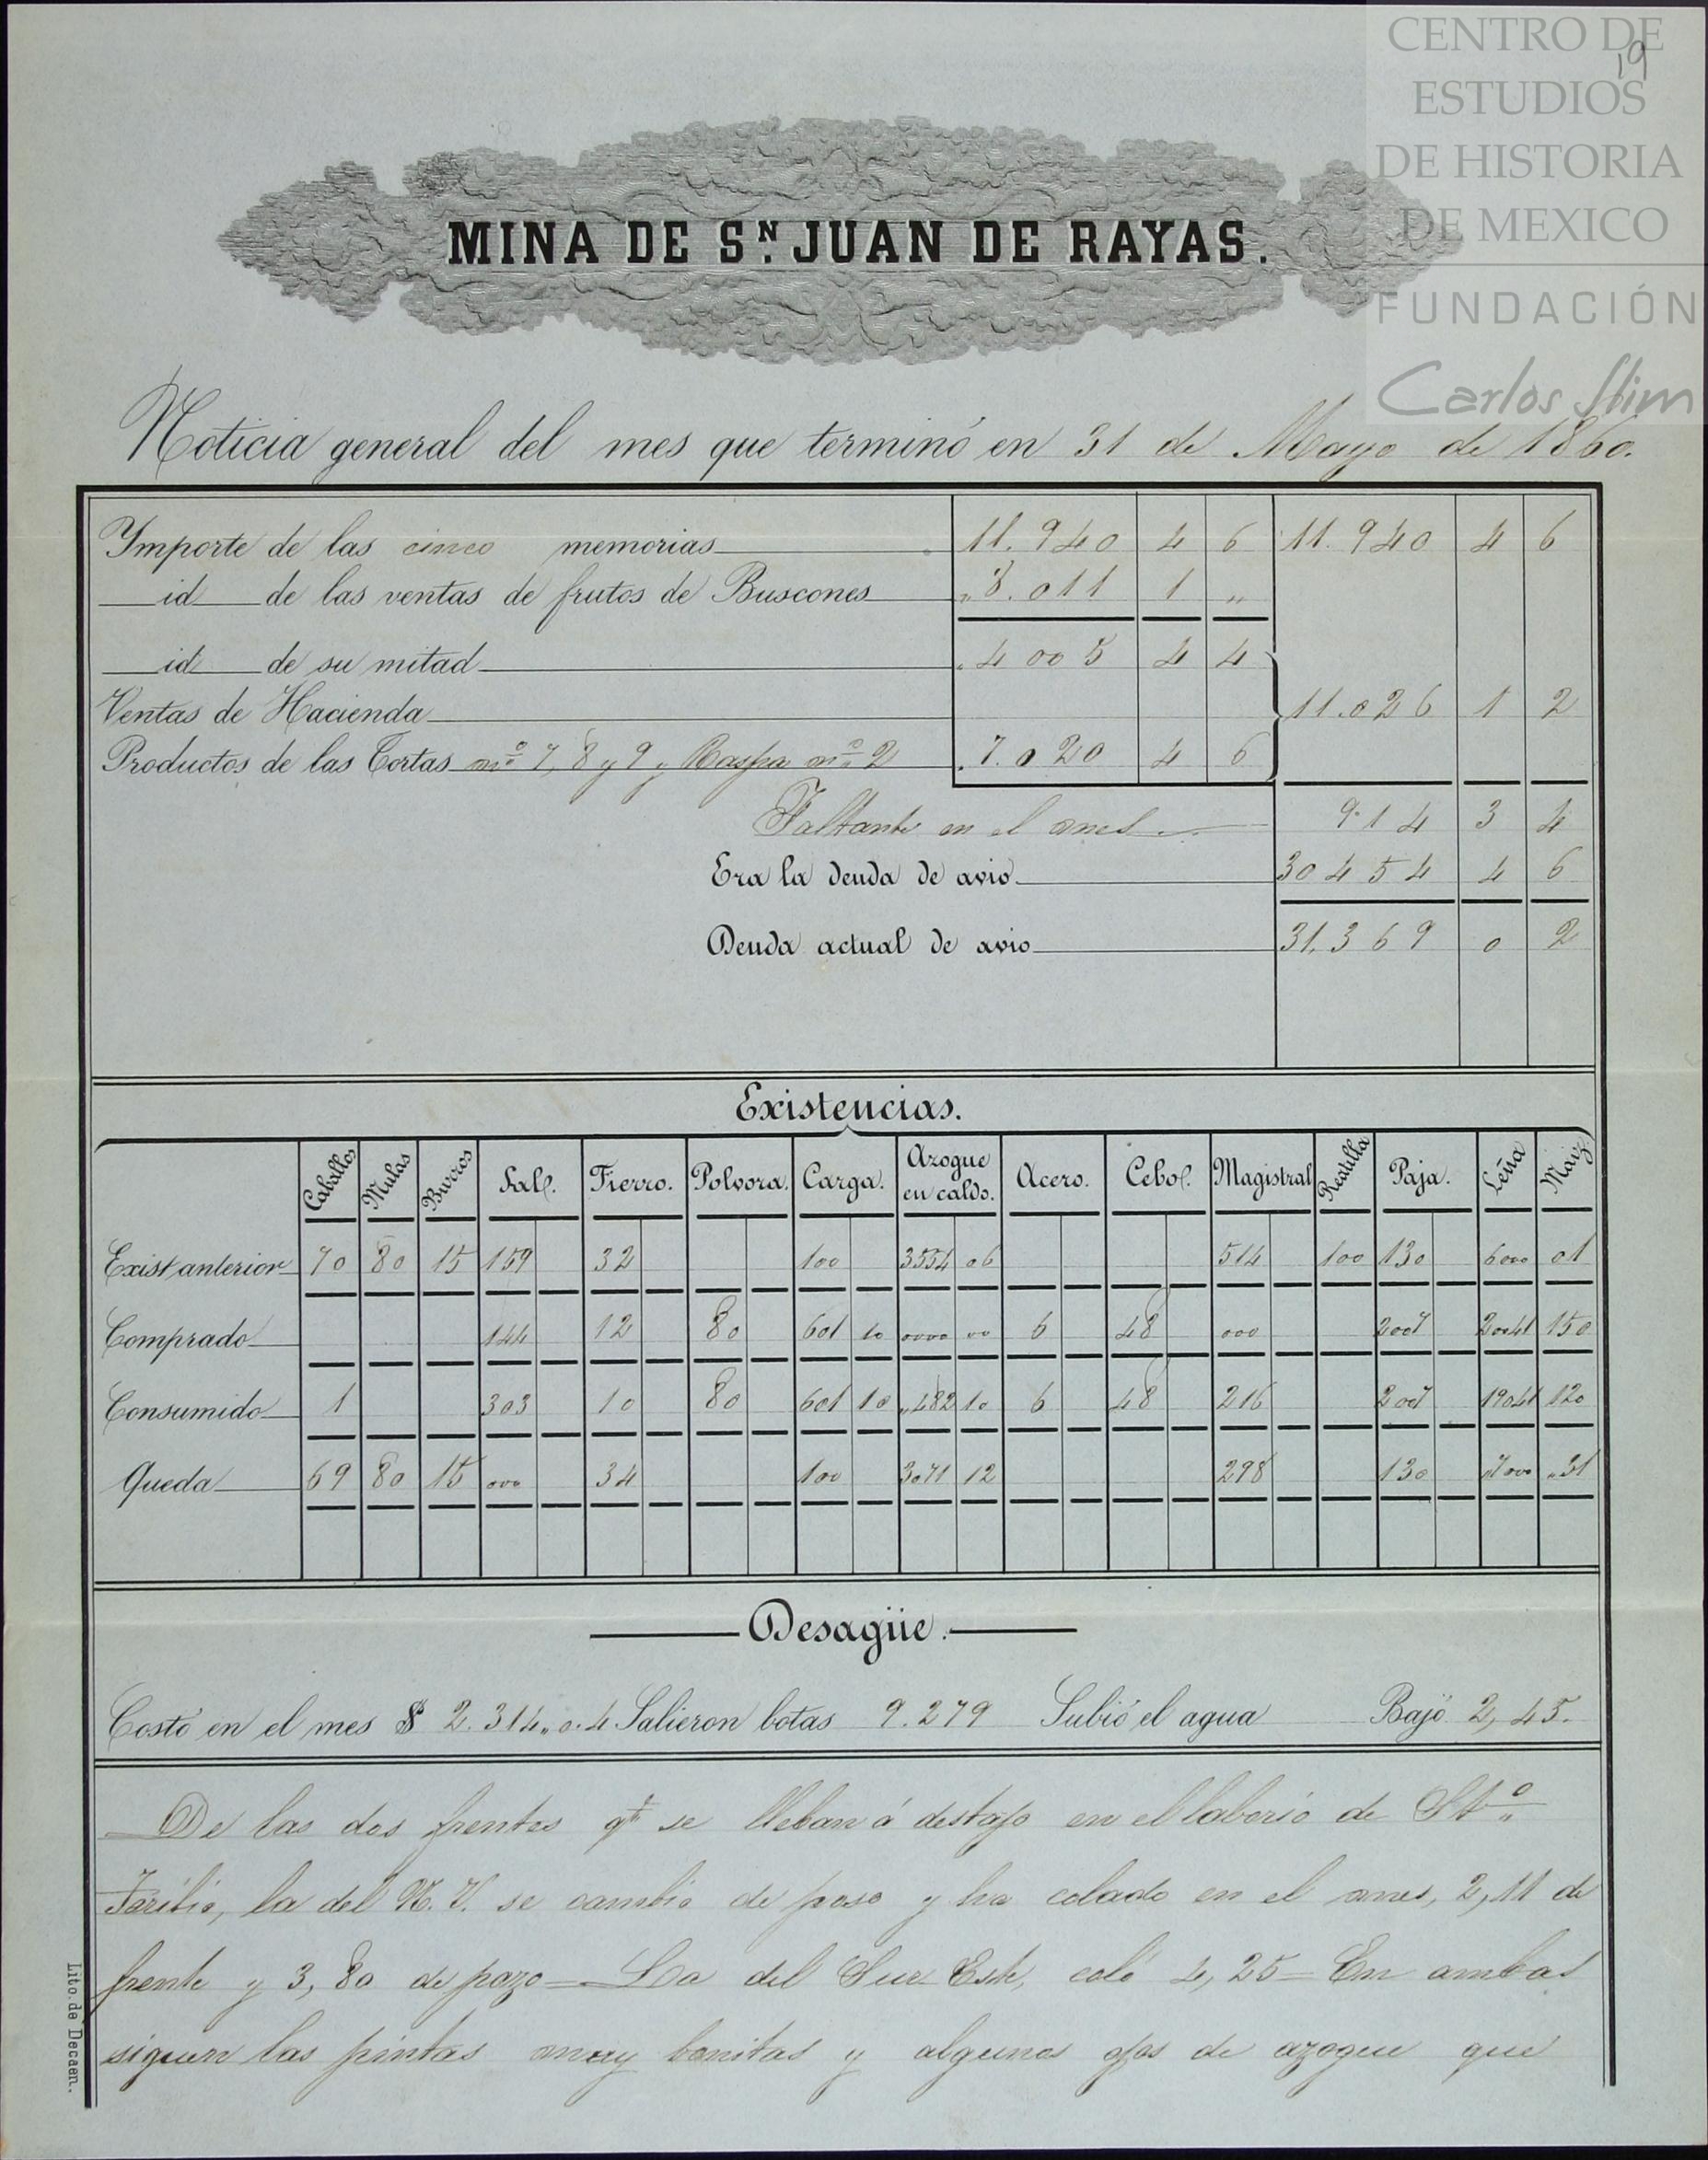 CENTRO DE
ESTUDIOS
DE HISTORIA
DE MEXICO
FUNDACIÓN
Carlos Slim
19
MINA DE Sᴺ. JUAN DE RAYAS.
Noticia general del mes que terminó en 31 de Mayo de 1860.
Ymporte de las cinco memorias 11.940 4 6 11.940 4 6
id de las ventas de frutos de Buscones „8.011 1 „
id de su mitad „4005 4 4
Ventas de Hacienda 11.026 1 2
Productos de las Tortas nos. 7, 8 y 9 y Raspa no. 2 „7.020 4 6
Faltante en el mes 914 3 4
Era la deuda de avio 30454 4 6
Deuda actual de avio 31.369 0 2
Existencias.
Caballos Mulas Burros Sal. Fierro. Polvora. Carga. Azogue en caldo. Acero. Cebo. Magistral Reatilla Paja. Leña Maiz
Exist anterior 70 80 15 159 32 100 3554 06 514 100 130 6000 01
Comprado 144 12 80 601 10 0000 00 6 48 000 2007 20041 150
Consumido 1 303 10 80 601 10 „482 10 6 48 216 2007 19041 120
Queda 69 80 15 000 34 100 3071 12 298 130 „7000 „31
Desagüe.
Costó en el mes $ 2.314„0.4 Salieron botas 9.279 Subió el agua Bajó 2,45.
De las dos frentes qe. se lleban á destajo en el laborio de Sto.
Toribio, la del N. V. se cambió de poso y ha colado en el mes, 2,11 de
frente y 3,80 de pozo = La del Sur Este, coló 4,25 = En ambas
siguen las pintas muy bonitas y algunos ojos de azogue que
Lito. de Decaen.